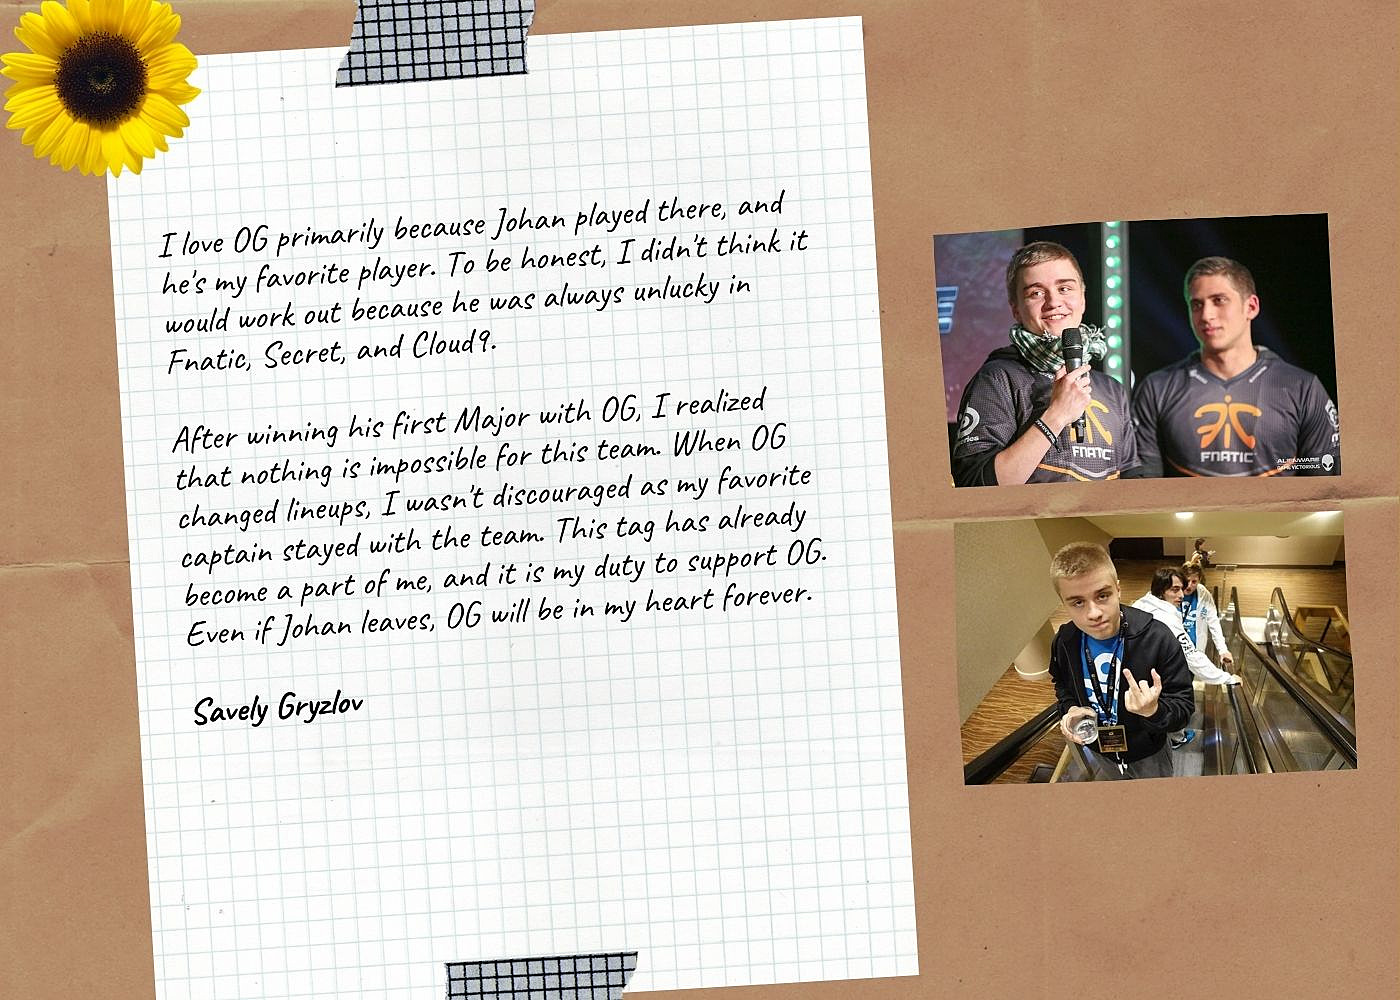 I love OG primarily because Johan played there, and
he's my favorite player. To be honest, I didn't think it
would work out because he was always unlucky in
Fnatic, Secret, and Cloud9.
After winning his first Major with OG, I realized
that nothing is impossible for this team. When OG
changed lineups, I wasn't discouraged as my favorite
captain stayed with the team. This tag has already
become a part of me, and it is my duty to support OG.
Even if Johan leaves, OG will be in my heart forever.
Savely Gryzlov
FNATIC
FNATIC
ALIENWARE
GAME VICTORIOUS